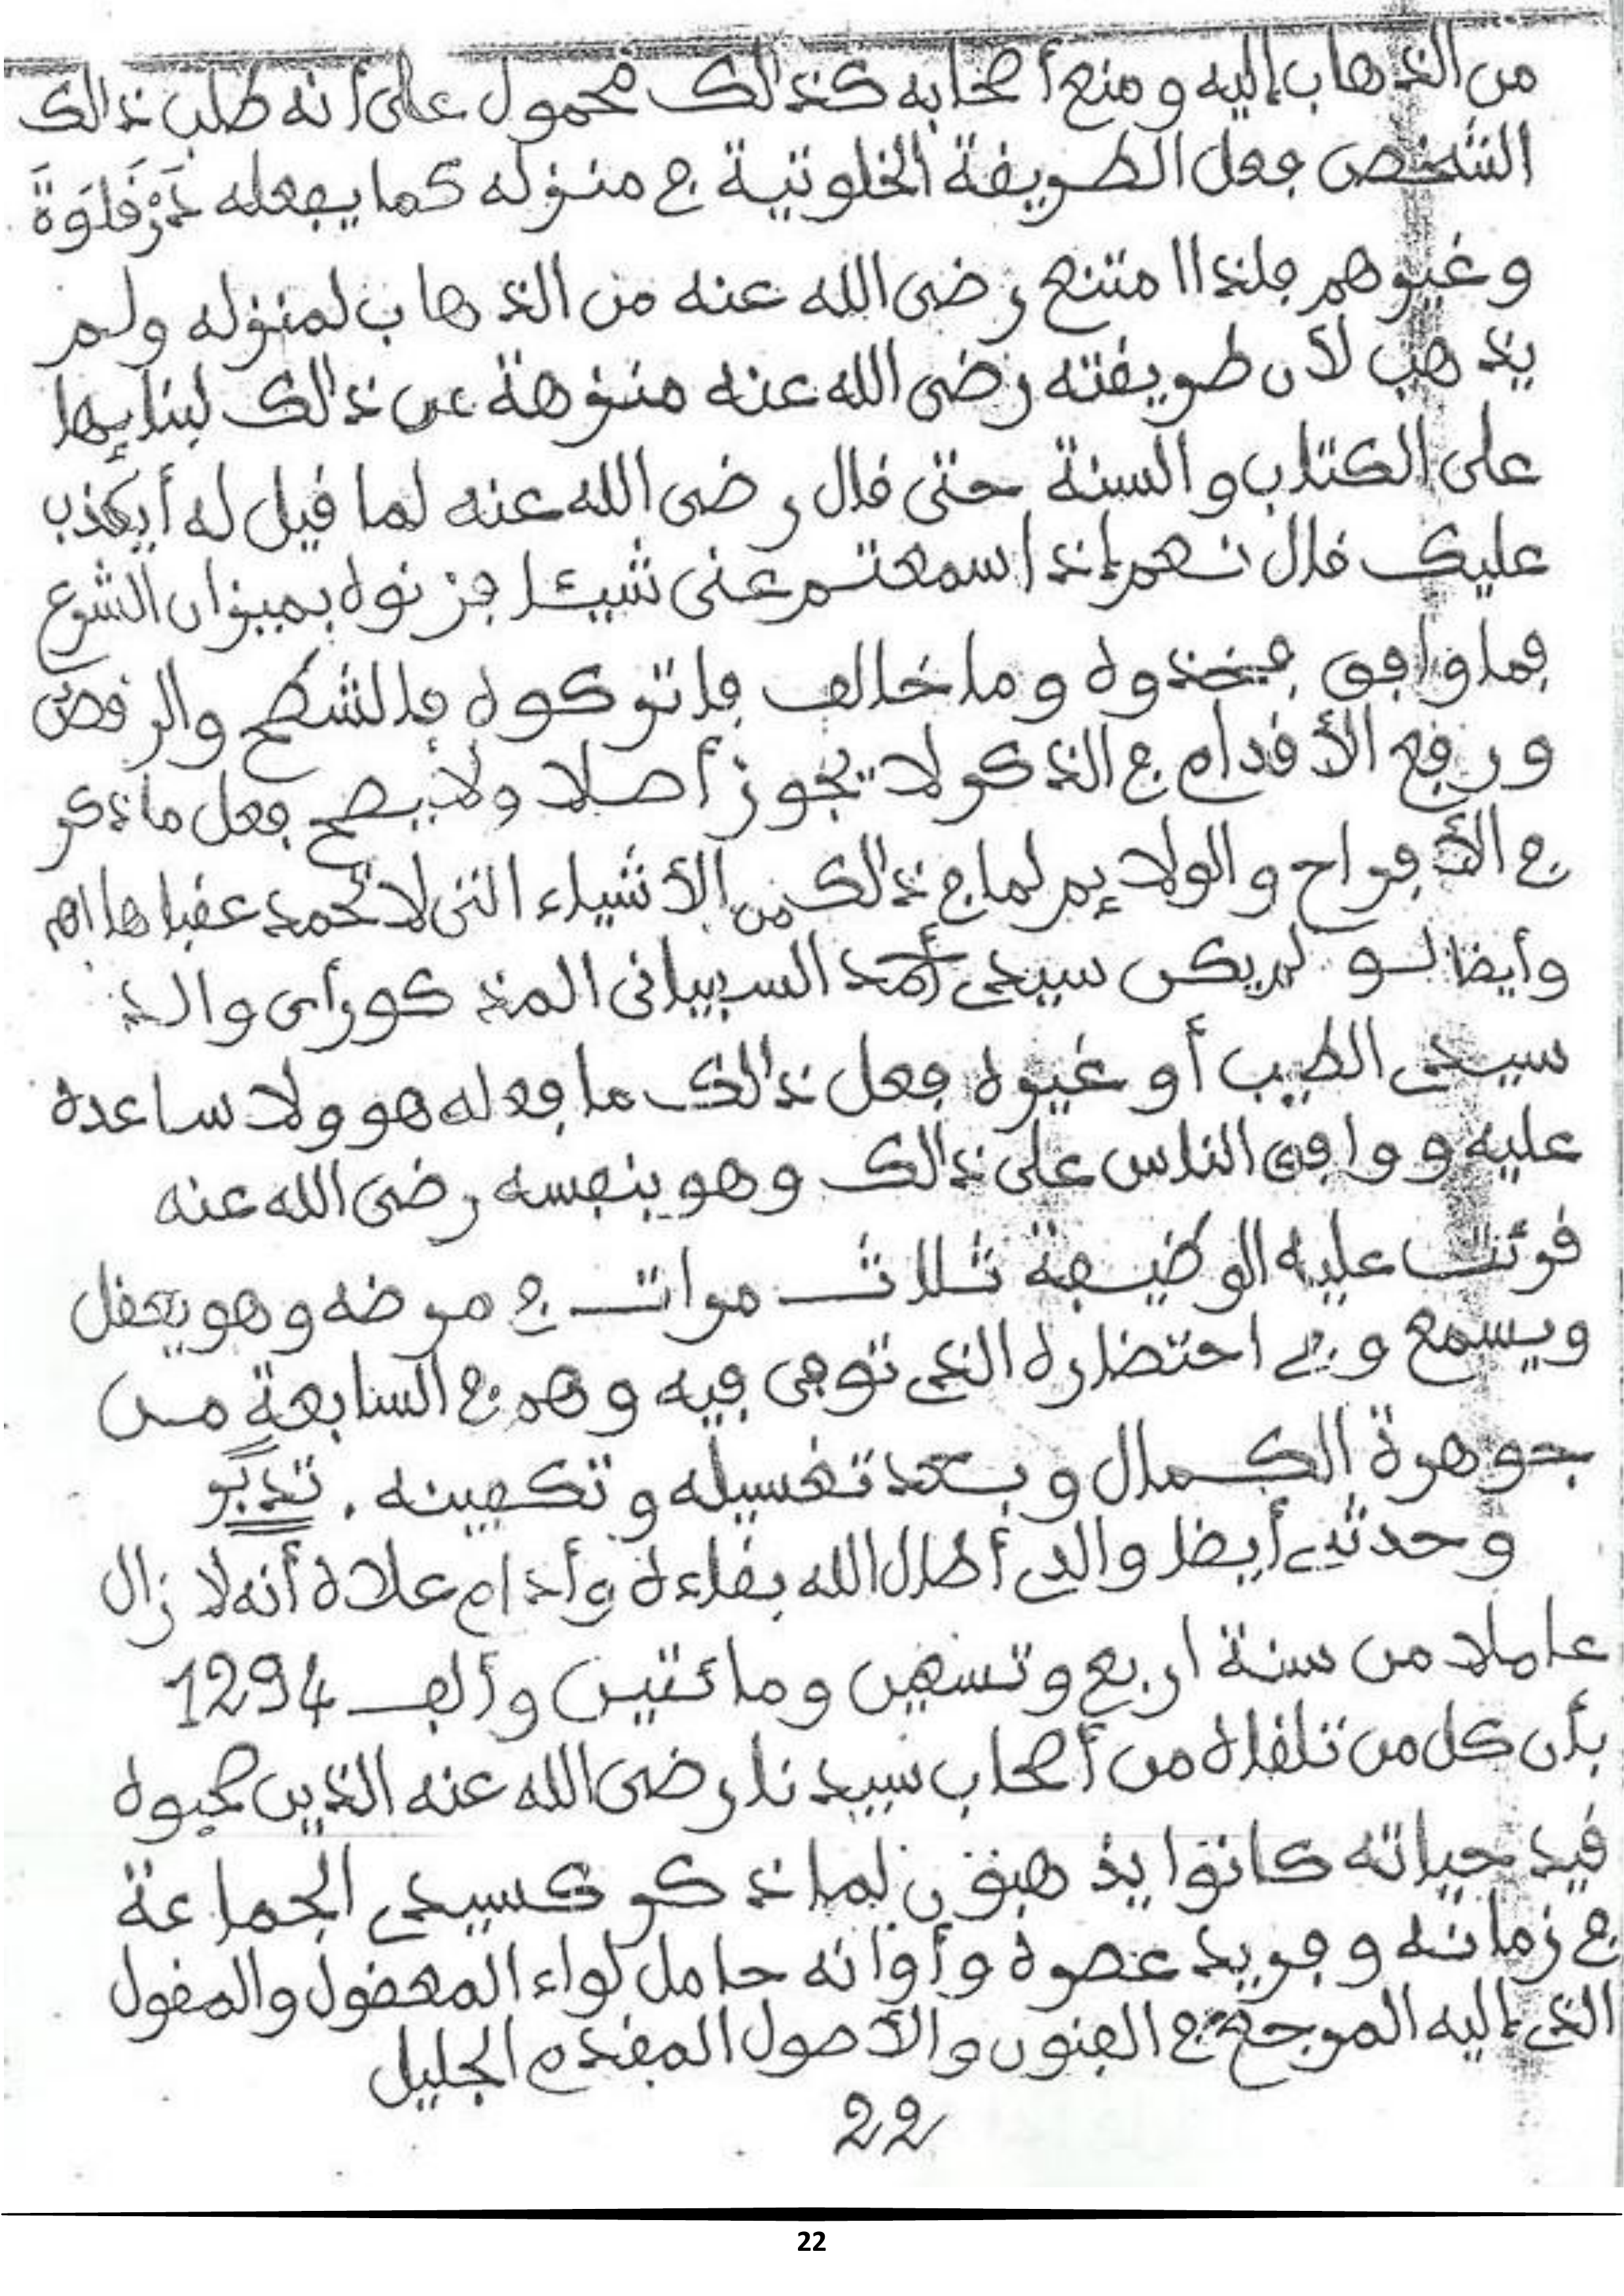 من الذهاب إليه ومنع أصحابه كذالك محمول على أنه طلب ذالك
الشخص فعل الطريقة الخلوتية في منزله كما يفعله
وغيرهم فلذا امتنع رضى الله عنه من الذهاب لمنزله ولم
يذهب لأن طريقته رضى الله عنه منزهة عن ذالك لبنايها
على الكتاب والسنة حتى قال رضى الله عنه لما قيل له أيكذب
عليك قال نعم إذا سمعتم عنى شيئا فزنوه بميزان الشرع
فما وافق فخذوه وما خالف فاتركوه فالشطح والرقص
ورفع الأقدام في الذكر لا يجوز أصلا ولا يصح فعل ما ذكر
في الأفراح والولايم لما في ذالك من الأشياء التى لا تحمد عقباها اهم
وأيضا لو لم يكن سيدى أحمد السبيانى المذكور رأى والد
سيدى الطيب أو غيره فعل ذالك ما فعله هو ولا ساعده
عليه ووافق الناس على ذالك وهو بنفسه رضى الله عنه
قرئت عليه الوظيفة ثلاث مرات في مرضه وهو يعقل
ويسمع وفي احتضاره الذى توفى فيه وهم في السابعة من
جوهرة الكمال وبعد تغسيله وتكفينه . تدبر
وحدثني أيضا والدى أطال الله بقاءه وأدام علاه أنه لا زال
عاملا من سنة اربع وتسعين ومائتين وألف 1294
بأن كل من تلقاه من أصحاب سيدنا رضى الله عنه الذين صحبوه
قيد حياته كانوا يذهبون لما ذكر كسيدى الجماعة
في زمانه وفريد عصره وأوانه حامل لواء المعقول والمقول
الذى إليه المرجع في الفنون والأصول المقدم الجليل
22
22